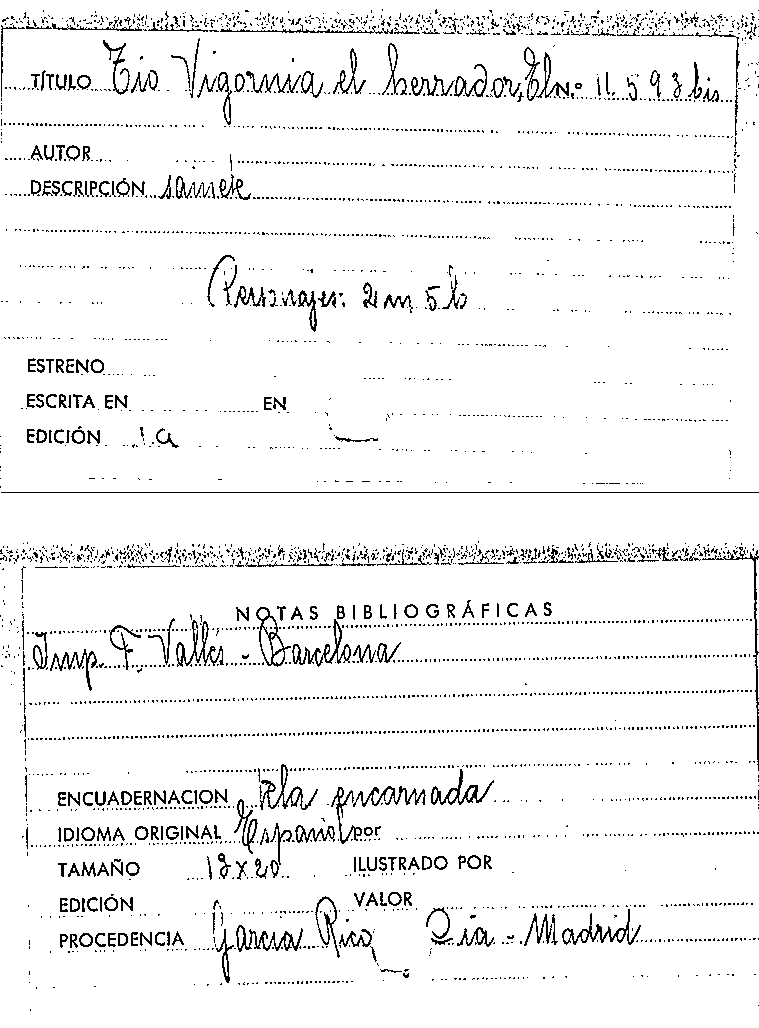 TÍTULO Tio Vigornia el herrador, El N.- 11.593 bis
AUTOR
DESCRIPCIÓN sainete
Personajes: 2 m 5 h
ESTRENO
ESCRITA EN EN
EDICIÓN 1.a
NOTAS BIBLIOGRÁFICAS
Imp. F. Vallés - Barcelona
ENCUADERNACION Tela encarnada
IDIOMA ORIGINAL Español por
TAMAÑO 13x20 ILUSTRADO POR
EDICIÓN VALOR
PROCEDENCIA García Rico Cía - Madrid